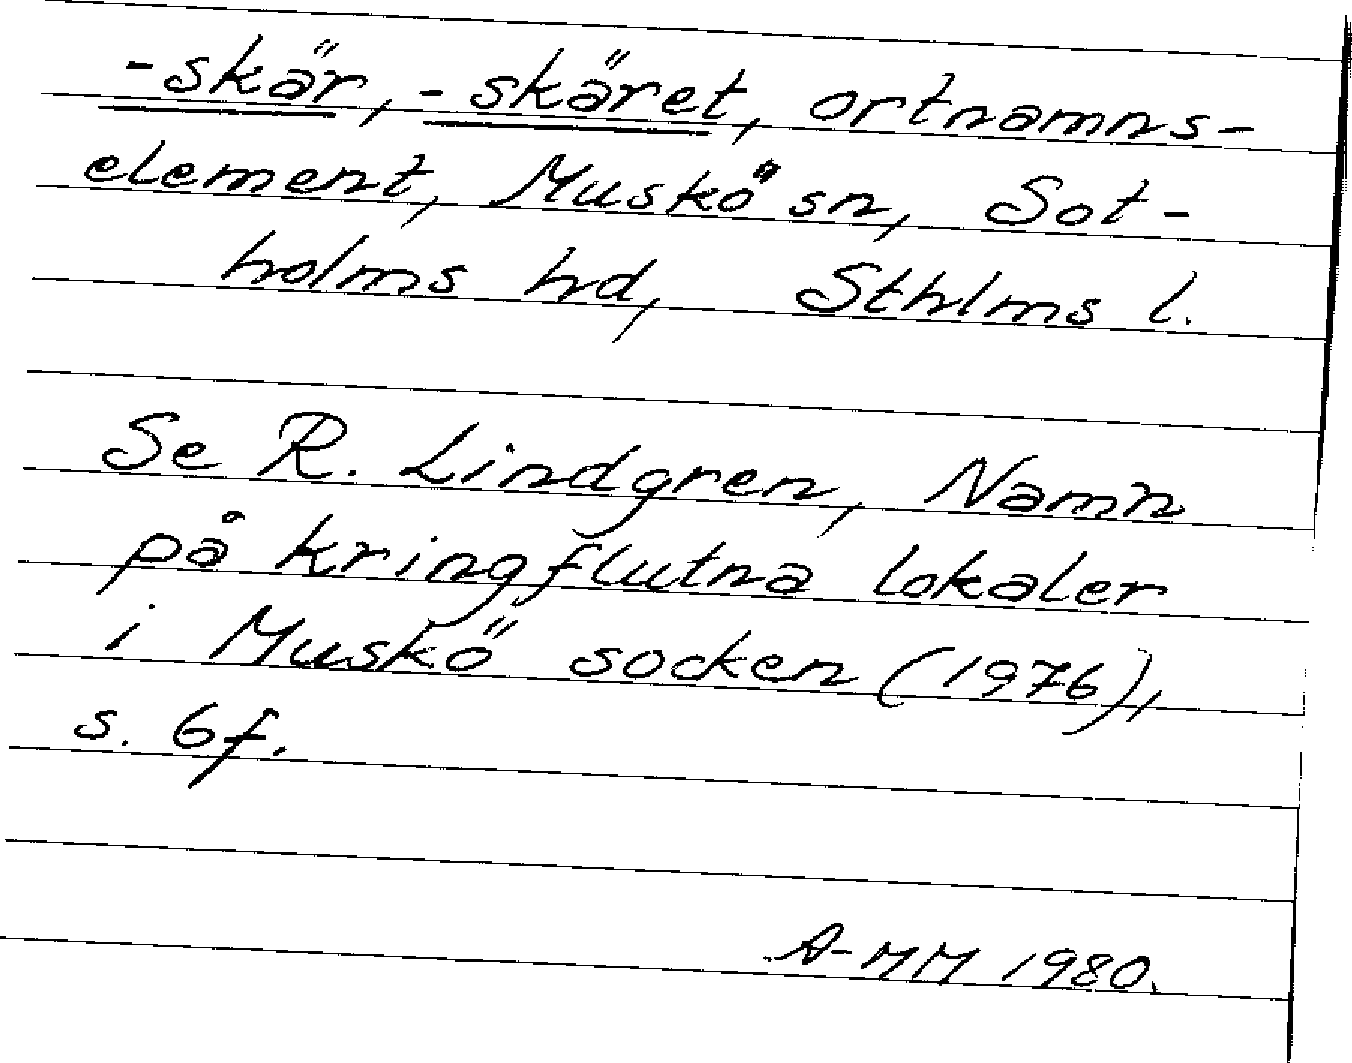 -skär, -skäret, ortnamns-
element, Muskö sn, Sot-
holms hd, Sthlms l.
Se R. Lindgren, Namn
på kringflutna lokaler
i Muskö socken (1976),
s. 6f.
A-MM 1980.